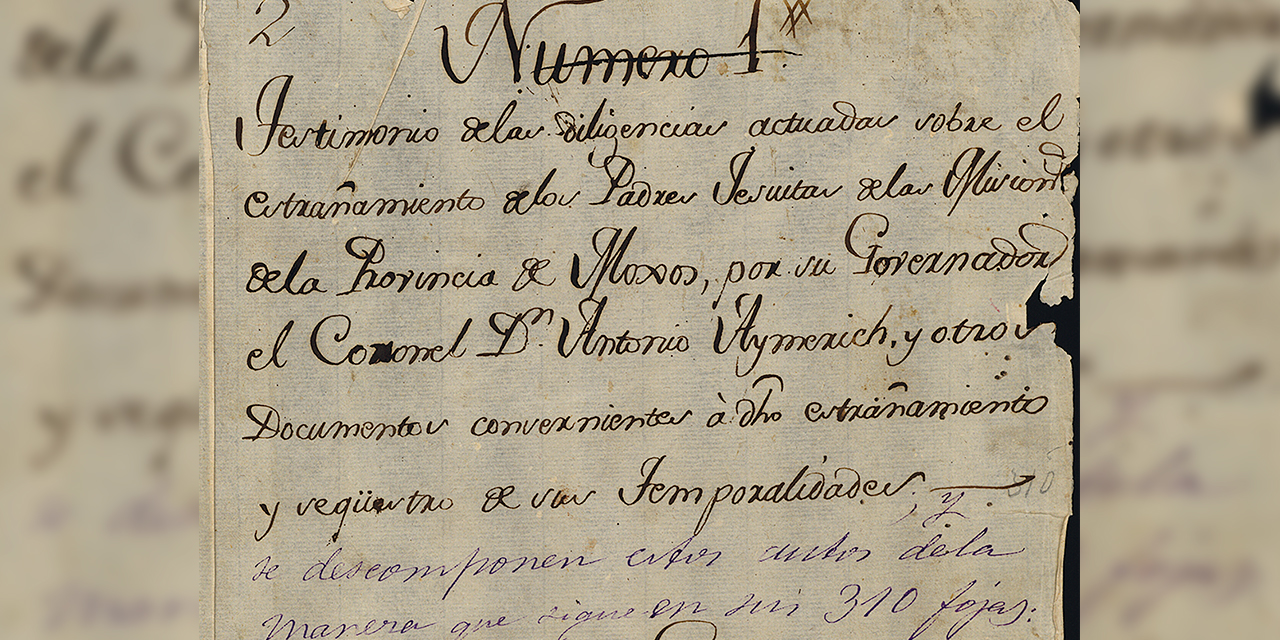 2
Numero 1.
Testimonio delas diligencias actuadas sobre el
estrañamiento delos Padres Jesuitas delas Mision.s
dela Provincia de Moxos, por su Governador
el Coronel D.n Antonio Aymerich, y otros
Documentos convernientes à dho estrañamiento
y seqüestro de sus Temporalidades; y
310
se descomponen estos autos dela
manera que sigue en sus 310 fojas.